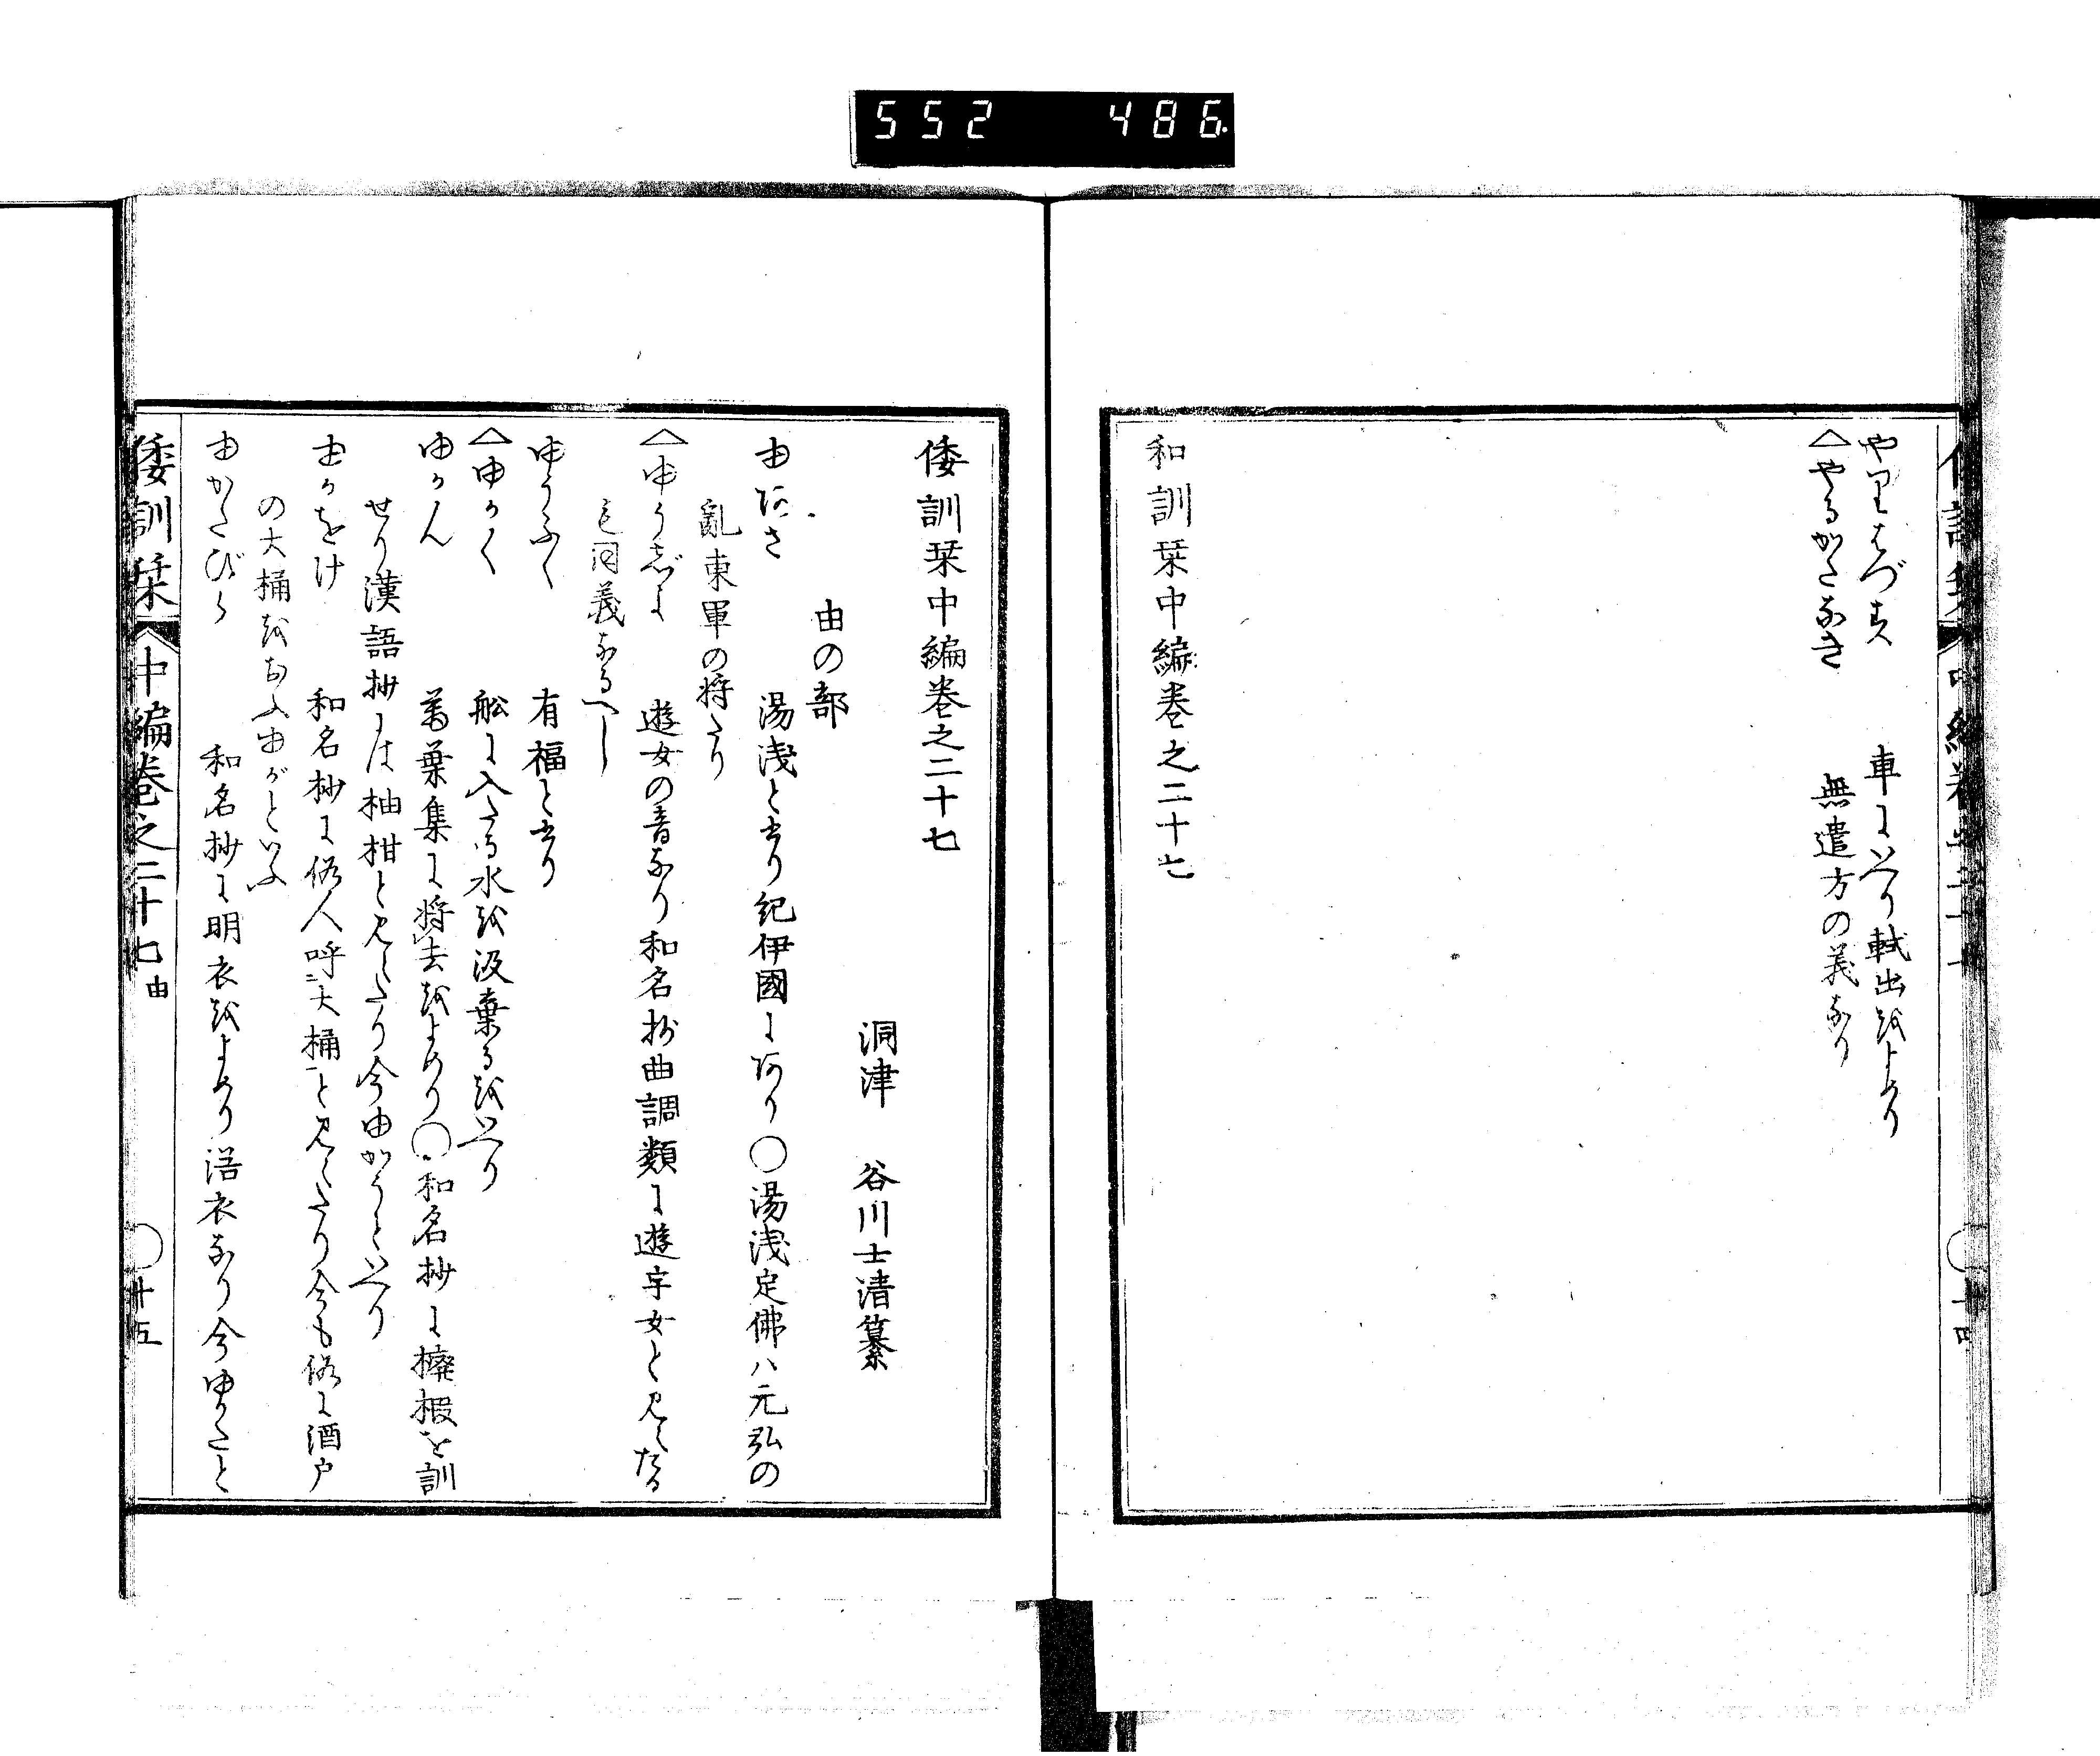 552 486
やりはづす 車にいへり軾出をよめり
△やるかたなき 無遣方の義なり
和訓栞中編巻之二十七
倭訓栞中編巻之二十七
洞津 谷川士清纂
由の部
ゆあさ 湯浅と書り紀伊國にあり○湯浅定佛ハ元弘の
亂東軍の将たり
△ゆうぢよ 遊女の音なり和名抄曲調類に遊字女と見えたる
も同義なるへし
ゆうふく 有福と書り
△ゆかく 舩に入たる水を汲棄るをいへり
ゆかん 萬葉集に将去をよめり○和名抄に櫠椵を訓
せり漢語抄には柚柑と見えたり今ゆかうといへり
ゆかをけ 和名抄に俗人呼二大桶一と見えたり今も俗に酒戸
の大桶をおふゆがといふ
ゆかたびら 和名抄に明衣をよめり浴衣なり今ゆかたと
倭訓栞 中編巻之二十七 由 ○十五